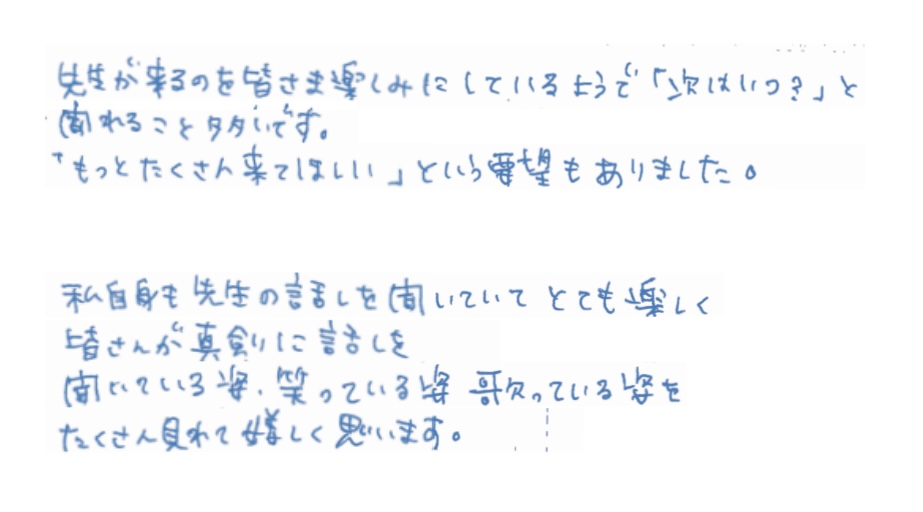 先生が来るのを皆さま楽しみにしているようで「次はいつ？」と
聞れること多いです。
"もっとたくさん来てほしい」という要望もありました。
私自身も先生の話しを聞いていてとても楽しく
皆さんが真剣に話しを
聞いている姿、笑っている姿 歌っている姿を
たくさん見れて嬉しく思います。